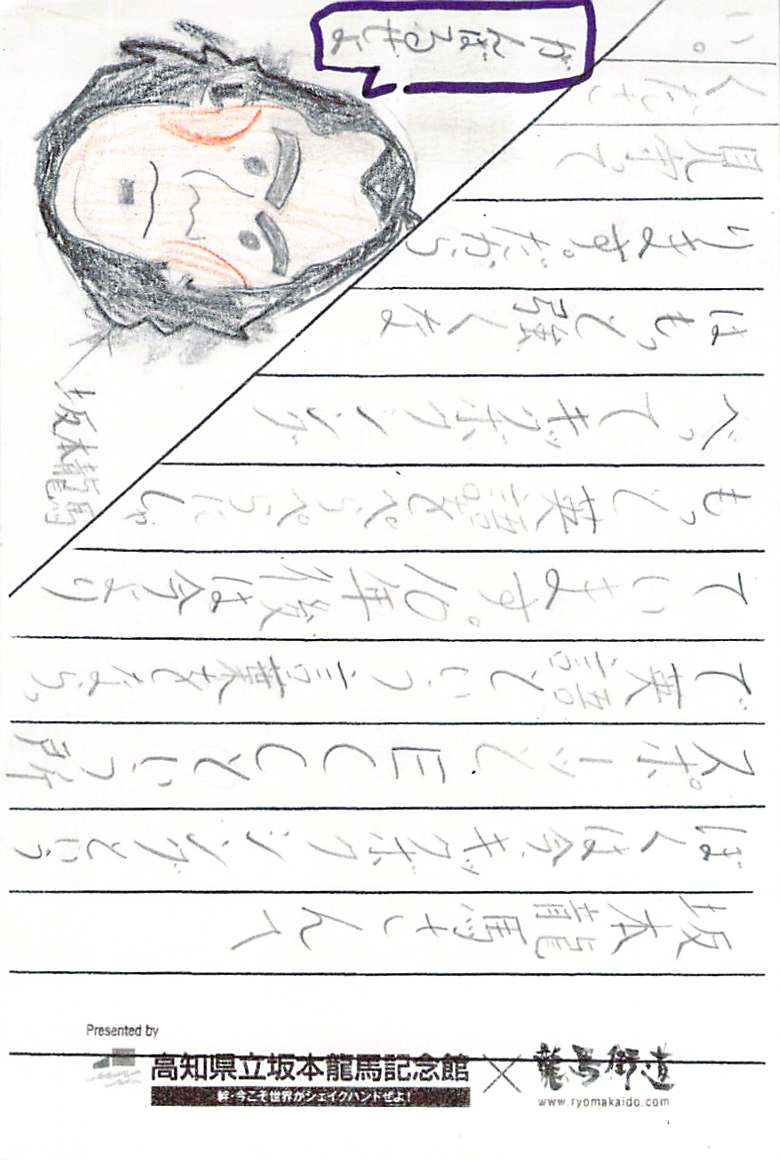 坂本龍馬さんへ
ぼくは今、キックボクシングという
スポーツとECCという所
で英語という言葉をならっ
ています。10年後は今より
もっと英語をぺらぺらにしゃ
べってキックボクシング
はもっと強くな
ります。だから
見守って
くださ
い。
がんばるせよ
坂本龍馬
Presented by
高知県立坂本龍馬記念館×龍馬街道
絆・今こそ世界がシェイクハンドぜよ!
www.ryomakaido.com